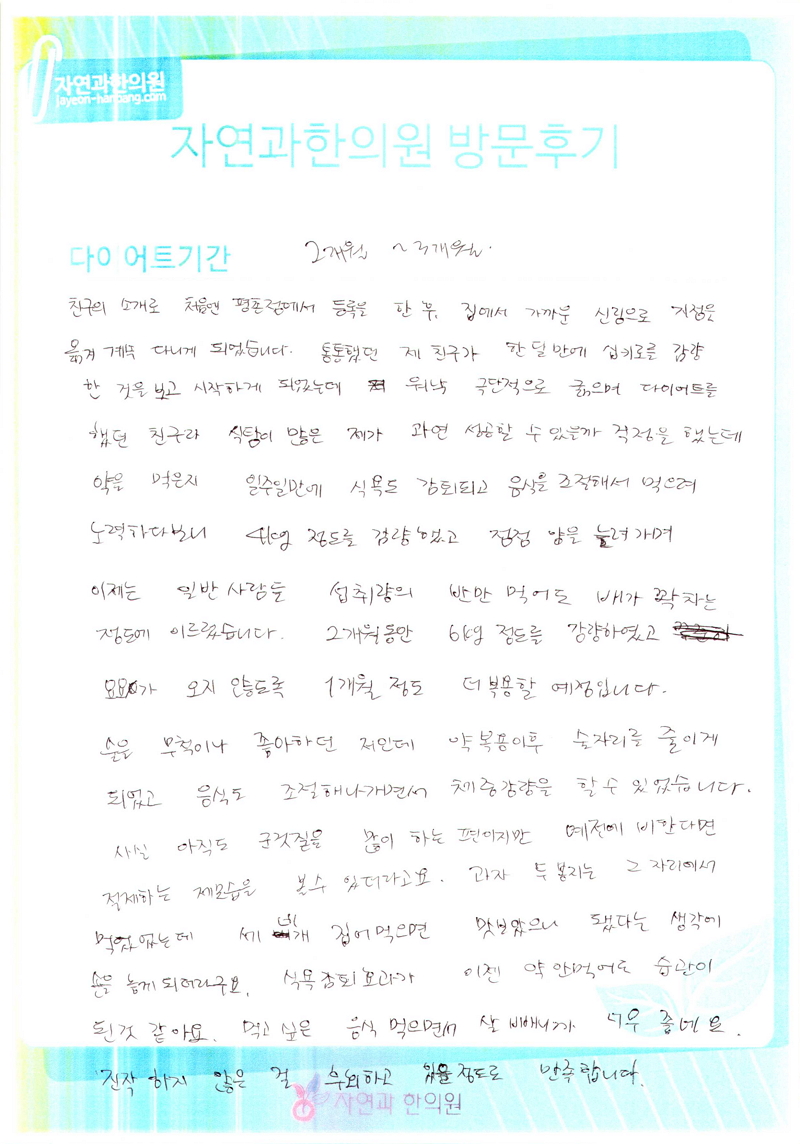 자연과한의원
jayeon-hanbang.com
자연과한의원 방문후기
다이어트기간 2개월 ~ 3개월.
친구의 소개로 처음엔 평촌점에서 등록을 한 후, 집에서 가까운 신림으로 지점을
옮겨 계속 다니게 되었습니다. 통통했던 제 친구가 한 달 만에 십키로를 감량
한 것을 보고 시작하게 되었는데 워낙 극단적으로 굶으며 다이어트를
했던 친구라 식탐이 많은 제가 과연 성공할 수 있을까 걱정을 했는데
약을 먹은지 일주일만에 식욕도 감퇴되고 음식을 조절해서 먹으려
노력하다보니 4kg 정도를 감량 했고 점점 양을 늘려가며
이제는 일반 사람들 섭취량의 반만 먹어도 배가 꽉차는
정도에 이르렀습니다. 2개월동안 6kg 정도를 감량하였고
요요가 오지 않도록 1개월 정도 더 복용할 예정입니다.
술을 무척이나 좋아하던 저인데 약 복용이후 술자리를 줄이게
되었고 음식도 조절해나가면서 체중감량을 할 수 있었습니다.
사실 아직도 군것질을 많이 하는 편이지만 예전에 비한다면
절제하는 제모습을 볼수 있더라고요. 과자 두 봉지는 그 자리에서
먹었었는데 세 네개 집어먹으면 맛보았으니 됐다는 생각에
손을 놓게 되더라구요. 식욕감퇴 효과가 이젠 약 안먹어도 습관이
된것 같아요. 먹고 싶은 음식 먹으면서 살 빼니까 너무 좋네요.
진작 하지 않은 걸 후회하고 있을 정도로 만족합니다.
자연과 한의원